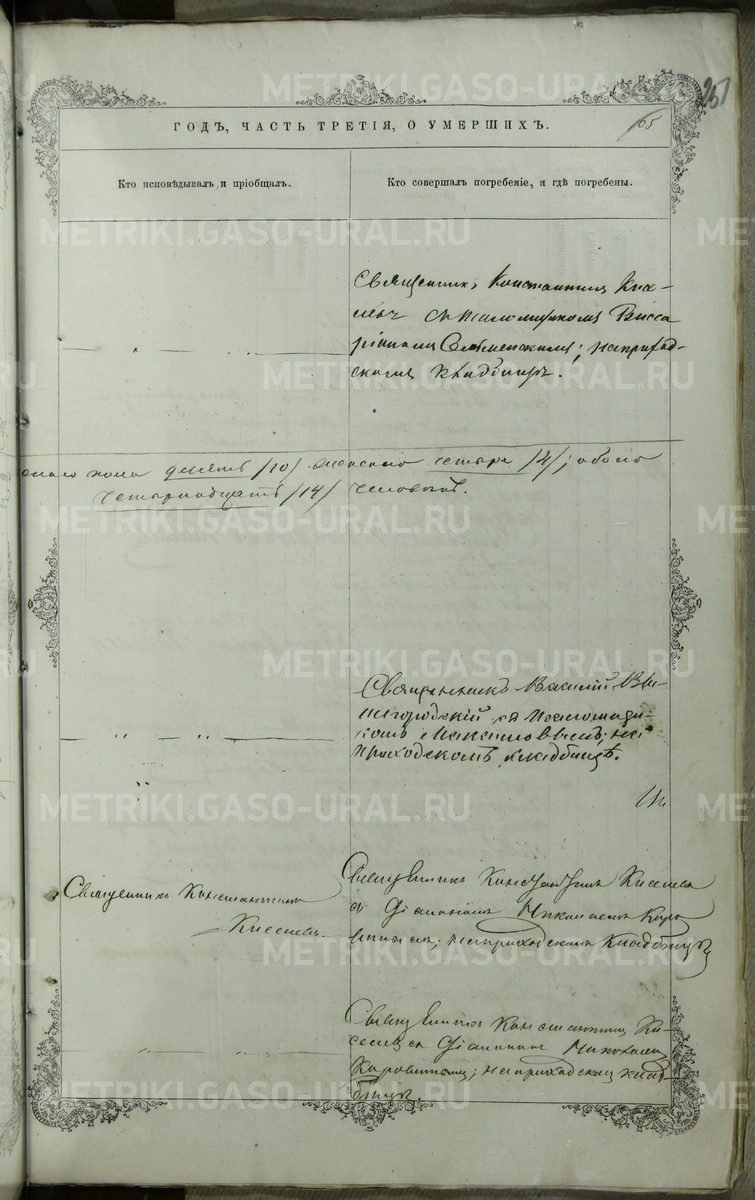 257
ГОДЪ, ЧАСТЬ ТРЕТІЯ, О УМЕРШИХЪ.
105
Кто исповѣдывалъ и пріобщалъ.
Кто совершалъ погребеніе, и гдѣ погребены.
Священникъ Константинъ Кисе-
левъ съ псаломщикомъ Висса
ріономъ Словенскимъ; на приход-
скомъ кладбищѣ.
пола десять /10/ женскаго четыре /4/; обоего
четырнадцать /14/ человѣкъ.
Священникъ Василій
съ псаломщи-
комъ на
приходскомъ кладбищѣ.
Священникъ Константинъ
Киселевъ.
Священникъ Константинъ Киселевъ
съ Діакономъ Николаемъ Коро
на приходскомъ кладбищѣ
Священникъ Константинъ Ки-
селевъ съ Діакономъ Николаемъ
на приходскомъ клад-
бищѣ.
METRIKI.GASO-URAL.RU